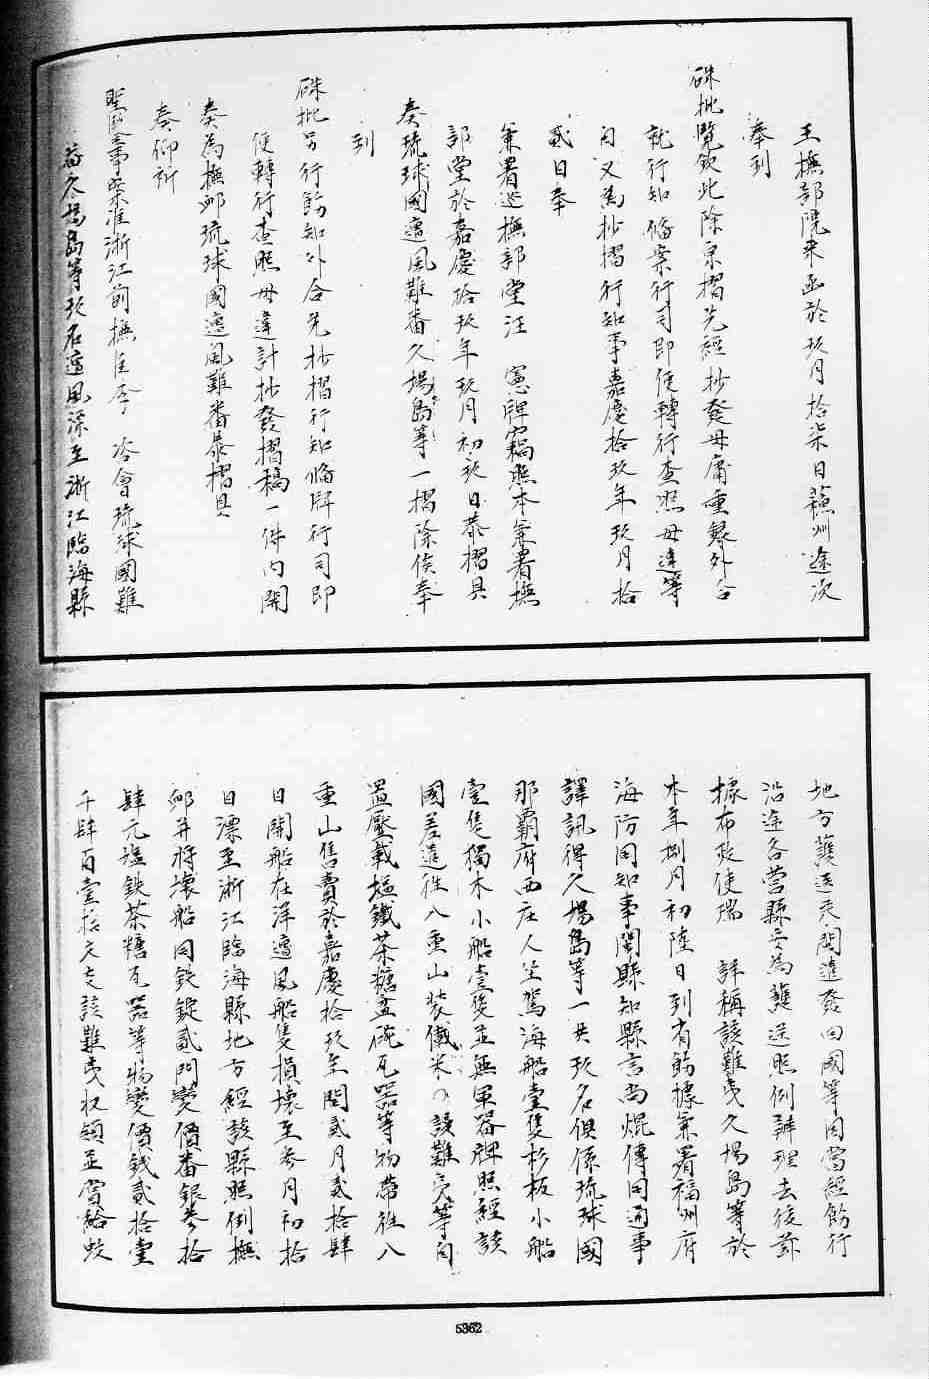 王撫部院來函於玖月拾柒日蘇州途次
奉到
硃批覽欽此除原摺先經抄發毋庸重錄外合
就行知俻案行司即便轉行查照毋違等
因又為抄摺行知事嘉慶拾玖年玖月拾
貳日奉
兼署巡撫部堂汪　憲牌竊照本兼署撫
部堂於嘉慶拾玖年玖月初玖日恭摺具
奏琉球國遭風難番久塲島等一摺除俟奉
到
硃批另行飭知外合先抄摺行知俻牌行司即
便轉行查照毋違計抄發摺稿一件內開
奏為撫䘏琉球國遭風難番恭摺具
奏仰祈
聖鑒事案准浙江前撫臣　咨會琉球國難
久塲島等玖名遭風漂至浙江臨海縣
地方護送來閩遣發回國等因當經飭行
沿途各營縣妥為護送照例辦理去後茲
據布政使瑞　詳稱該難夷久塲島等於
本年捌月初陸日到省飭據兼署福州府
海防同知事閩縣知縣言尚焜傳同通事
譯訊得久塲島等一共玖名俱係琉球國
那覇府西庄人坐駕海船壹隻杉板小船
壹隻獨木小船壹隻並無軍器牌照經該
國差遣往八重山裝儎米　該難夷等自
置壓載塩鐵茶糖盆碗瓦器等物帶往八
重山售賣於嘉慶拾玖年閏貳月貳拾肆
日開船在洋遭風船隻損壞至叁月初拾
日漂至浙江臨海縣地方經該縣照例撫
䘏并將壞船同鉄錠貳門變價番銀叁拾
肆元塩鉄茶糖瓦器等物變價錢貳拾壹
千肆百壹拾文交該難夷收領並賞給
5362